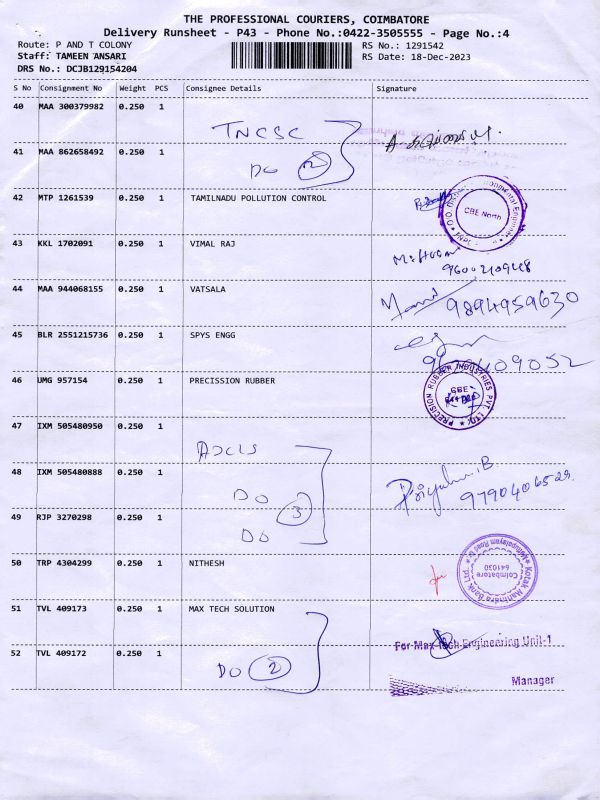 THE PROFESSIONAL COURIERS, COIMBATORE
Delivery Runsheet - P43 - Phone No.:0422-3505555 - Page No.:4
Route: P AND T COLONY RS No.: 1291542
Staff: TAMEEN ANSARI RS Date: 18-Dec-2023
DRS No.: DCJB129154204
S No Consignment No Weight PCS Consignee Details Signature
40 MAA 300379982 0.250 1
TNCSC
41 MAA 862658492 0.250 1
DO 2
42 MTP 1261539 0.250 1 TAMILNADU POLLUTION CONTROL
CBE North
43 KKL 1702091 0.250 1 VIMAL RAJ
44 MAA 944068155 0.250 1 VATSALA
9894959630
45 BLR 2551215736 0.250 1 SPYS ENGG
46 UMG 957154 0.250 1 PRECISSION RUBBER
PRECISION RUBBER INDUSTRIES PVT. LTD.
47 IXM 505480950 0.250 1
48 IXM 505480888 0.250 1
DO 3
9790406529
49 RJP 3270298 0.250 1
DO
50 TRP 4304299 0.250 1 NITHESH
Kotak Mahindra Bank Ltd
Coimbatore
641030
51 TVL 409173 0.250 1 MAX TECH SOLUTION
For Max Tech Engineering Unit-1
52 TVL 409172 0.250 1
DO 2
Manager